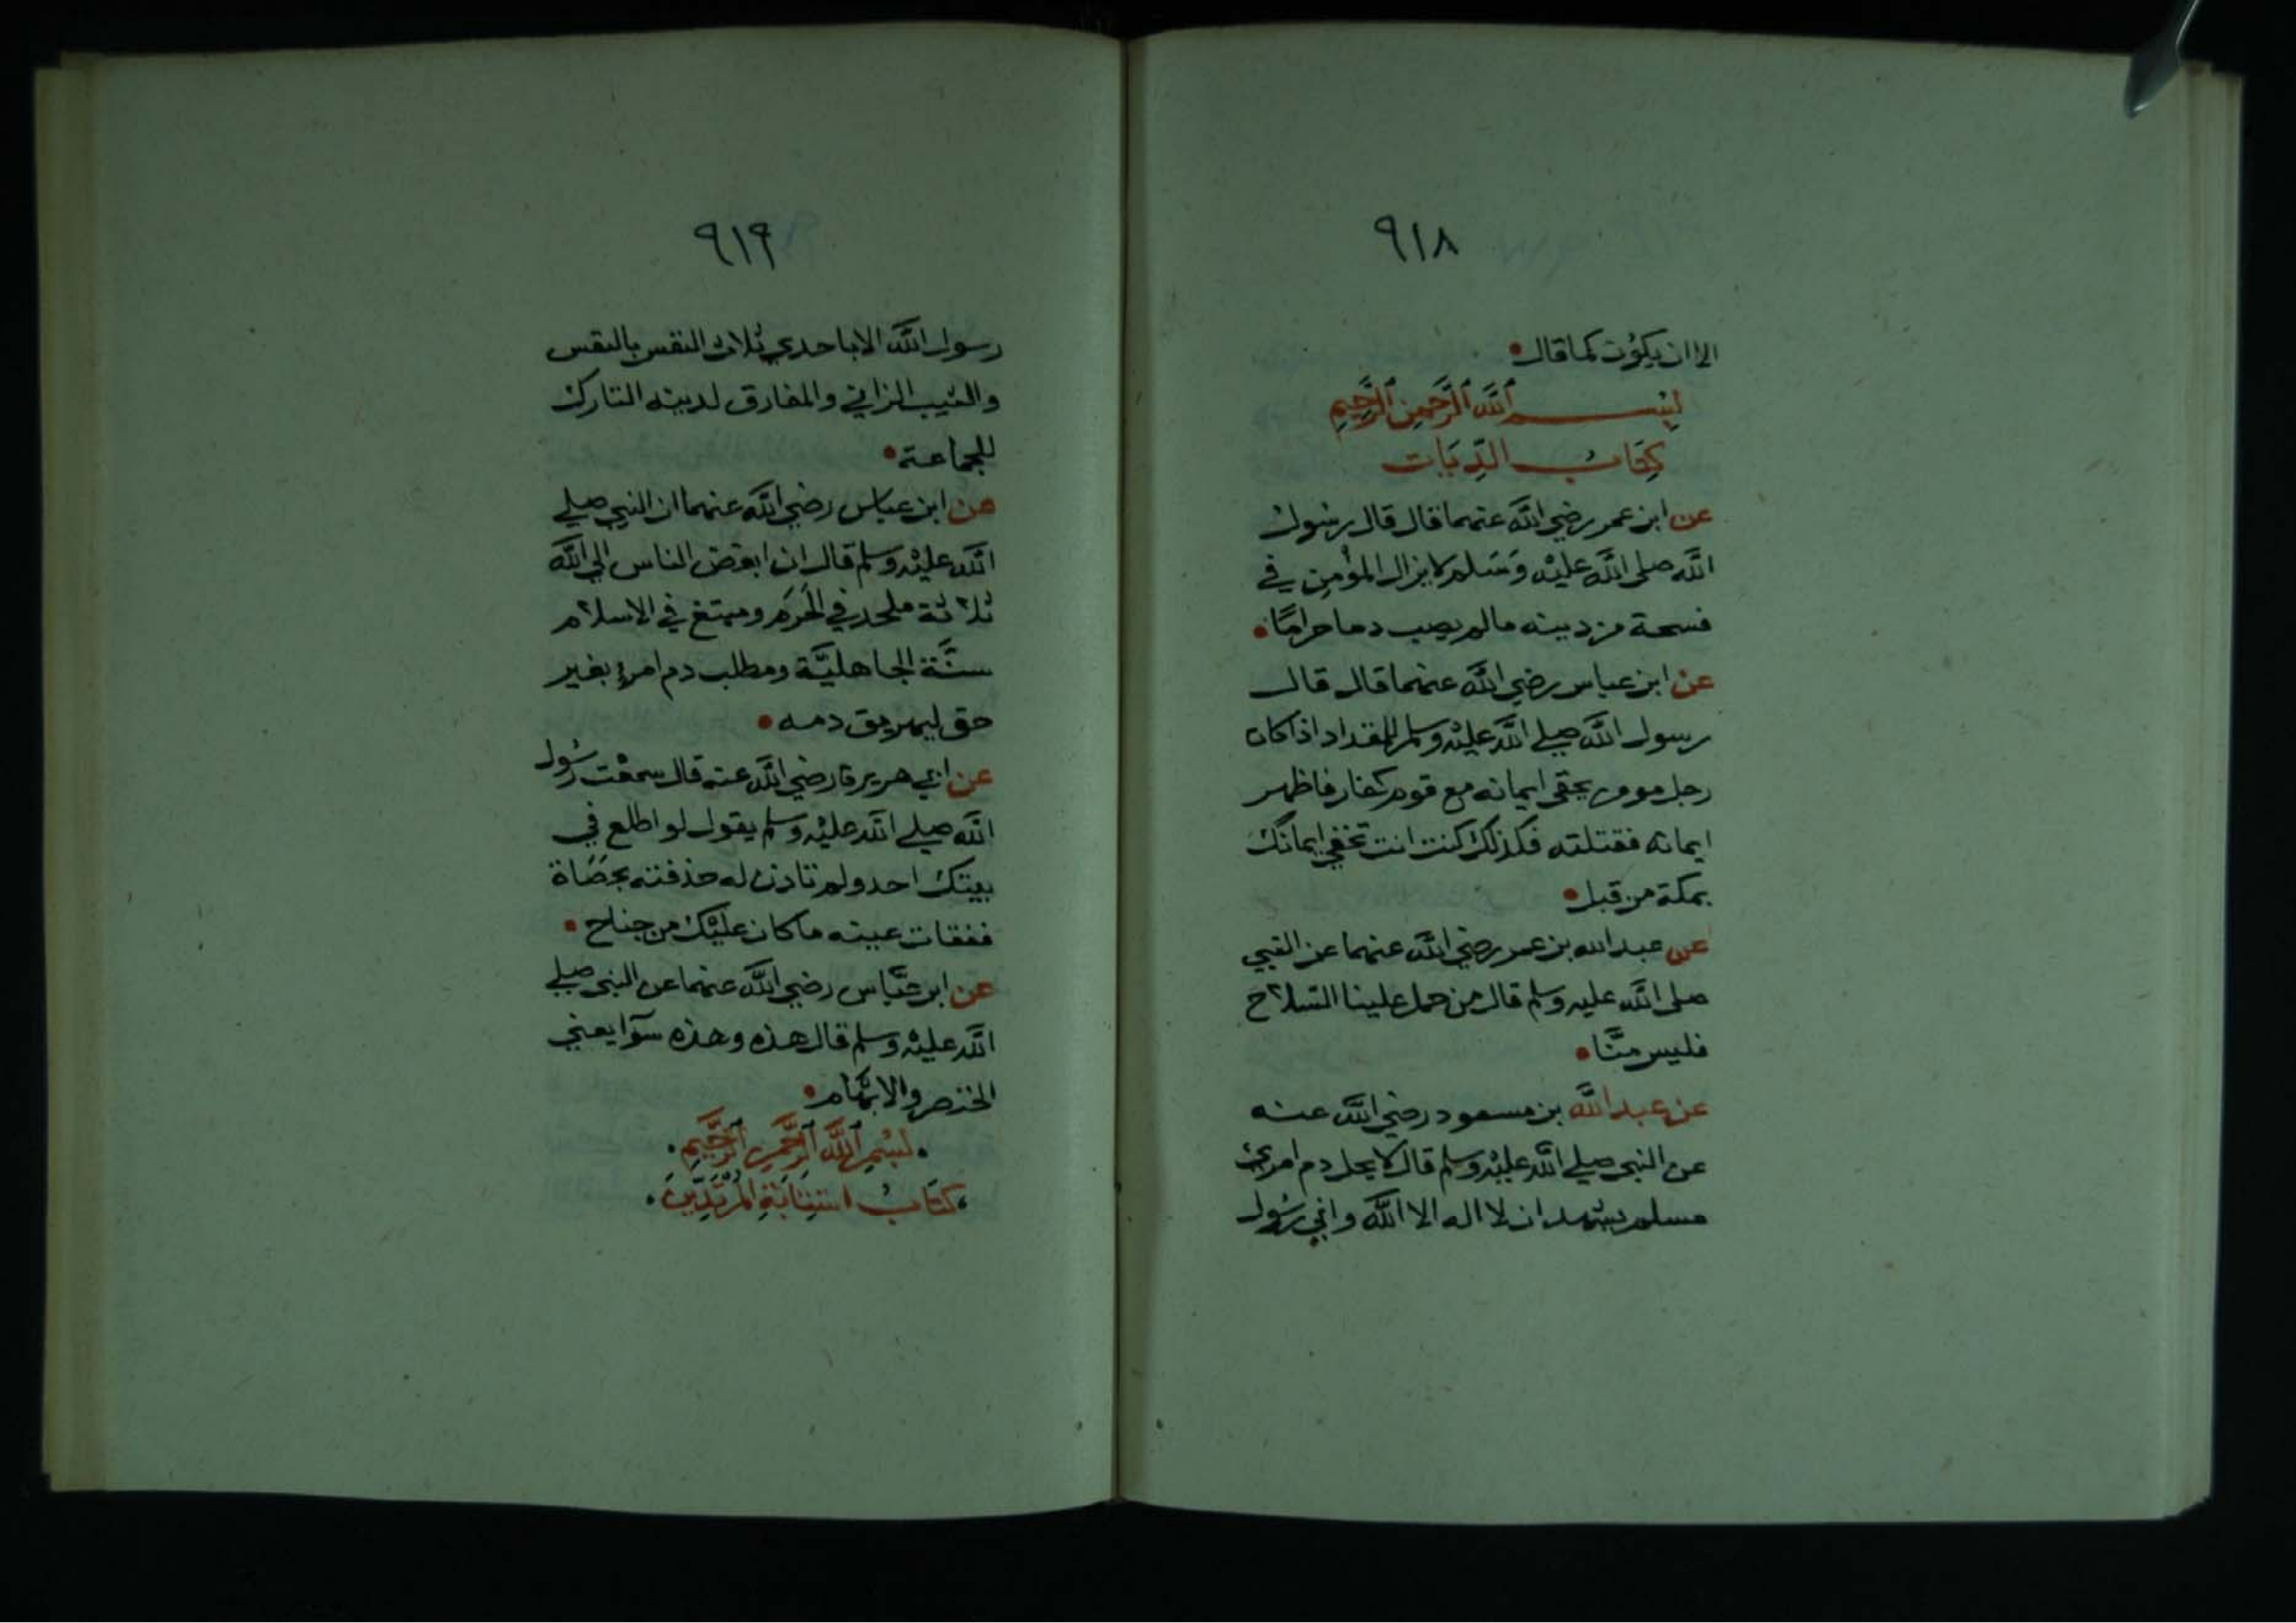 ٩١٨
الا ان يكون كما قال
بسم الله الرحمن الرحيم
كتاب الديات
عن ابن عمر رضي الله عنهما قال قال رسول
الله صلى الله عليه وسلم لا يزال المؤمن في
فسحة من دينه مالم يصب دما حراما
عن ابن عباس رضي الله عنهما قال قال
رسول الله صلى الله عليه وسلم للمقداد اذا كان
رجل مومن يخفى ايمانه مع قوم كفار فاظهر
ايمانه فقتلته فكذلك كنت انت تخفي ايمانك
بمكة من قبل
عن عبد الله بن عمر رضي الله عنهما عن النبي
صلى الله عليه وسلم قال من حمل علينا السلاح
فليس منا
عن عبد الله بن مسعود رضي الله عنه
عن النبي صلى الله عليه وسلم قال لا يحل دم امرئ
مسلم يشهد ان لا اله الا الله واني رسول
٩١٩
رسول الله الا باحدي ثلاث النفس بالنفس
والثيب الزاني والمفارق لدينه التارك
للجماعة
عن ابن عباس رضي الله عنهما ان النبي صلى
الله عليه وسلم قال ان ابغض الناس الى الله
ثلاثة ملحد في الحرم ومبتغ في الاسلام
سنة الجاهلية ومطلب دم امرئ بغير
حق ليهريق دمه
عن ابي هريرة رضي الله عنه قال سمعت رسول
الله صلى الله عليه وسلم يقول لو اطلع في
بيتك احد ولم تاذن له حذفته بحصاة
ففقات عينه ما كان عليك من جناح
عن ابن عباس رضي الله عنهما عن النبي صلى
الله عليه وسلم قال هذه وهذه سوآ يعني
الخنصر والابهام
بسم الله الرحمن الرحيم
كتاب استتابة المرتدين